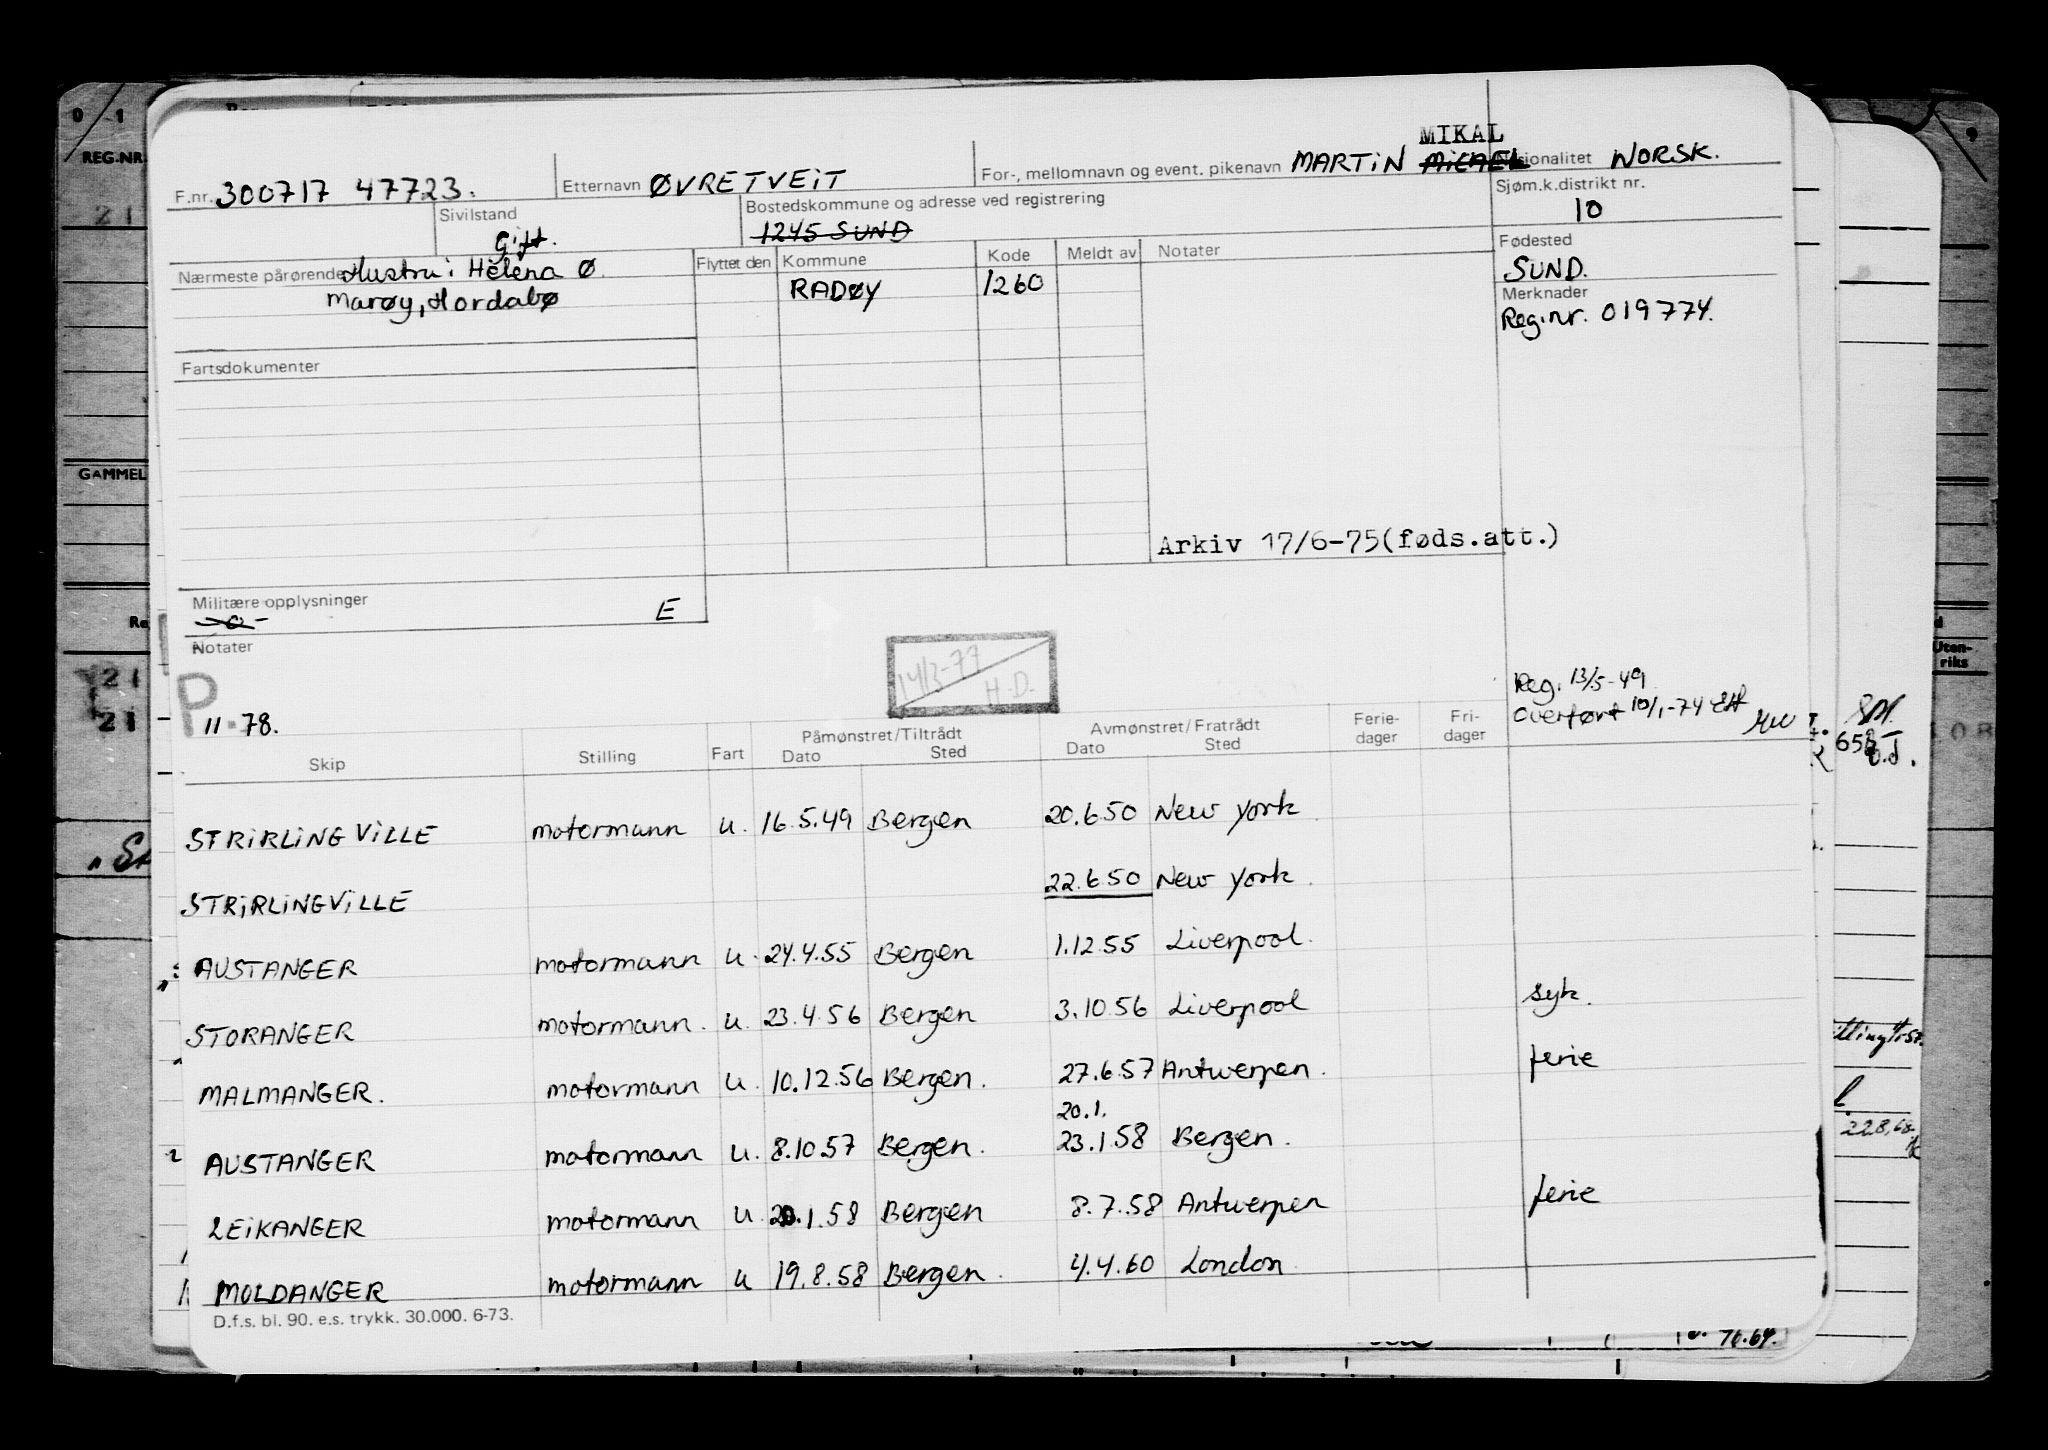 0/1
9
REG.NR.
21
GAMMEL
21
21
MIKAL
F.nr. 300717 47723. Etternavn ØVRETVEIT For-, mellomnavn og event. pikenavn MARTIN MICAEL Nasjonalitet NORSK.
Sivilstand Gift. Bostedskommune og adresse ved registrering 1245 SUND Sjøm.k.distrikt nr. 10
Nærmeste pårørende Hustru: Helena Ø. Flyttet den Kommune Kode Meldt av Notater Fødested SUND.
Marøy, Hordabø RADØY 1260 Merknader
Reg.nr. 019774.
Fartsdokumenter
Arkiv 17/6-75(føds.att.)
Militære opplysninger E
Notater
14/3-77
H.D.
P
11.78.
Reg. 13/5-49
Overført 10/1-74
Skip Stilling Fart Påmønstret/Tiltrådt Dato Sted Avmønstret/Fratrådt Dato Sted Ferie-dager Fri-dager
STRIRLINGVILLE motormann u. 16.5.49 Bergen 20.6.50 New York
STRIRLINGVILLE 22.6.50 New York
AUSTANGER motormann u. 24.4.55 Bergen 1.12.55 Liverpool.
STORANGER motormann. u. 23.4.56 Bergen 3.10.56 Liverpool syk.
MALMANGER. motormann u. 10.12.56 Bergen. 27.6.57 Antwerpen. ferie
20.1.
AUSTANGER motormann u. 8.10.57 Bergen. 23.1.58 Bergen.
LEIKANGER motormann u. 20.1.58 Bergen 8.7.58 Antwerpen ferie
MOLDANGER motormann u 19.8.58 Bergen. 4.4.60 London
D.f.s. bl. 90. e.s. trykk. 30.000. 6-73.
Uten-
riks